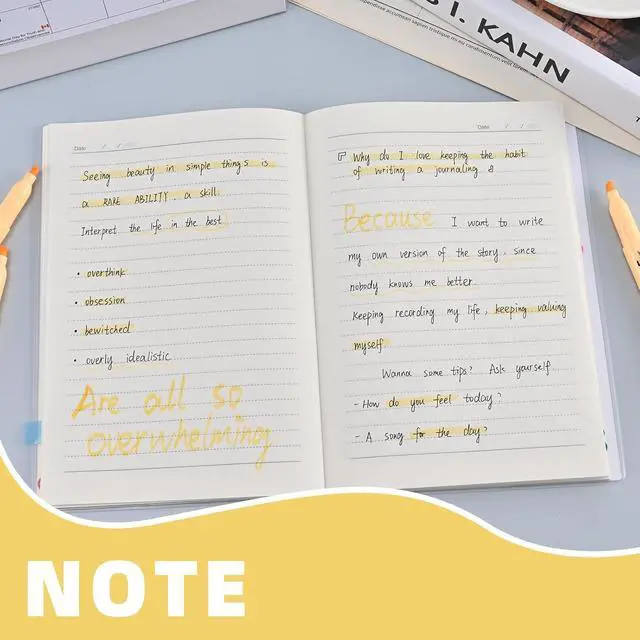 T. KAHN
Date
Seeing beauty in simple things is
a RARE ABILITY. a skill.
Interpret the life in the best
• overthink
• obsession
• bewitched
• overly idealistic
Are all so
overwhelming
Date
Why do I love keeping the habit
of writing a journaling &
Because I want to write
my own version of the story. since
nobody knows me better.
Keeping recording my life, keeping valuing
myself
Wanna some tips? Ask yourself
- How do you feel today?
- A song for the day?
NOTE